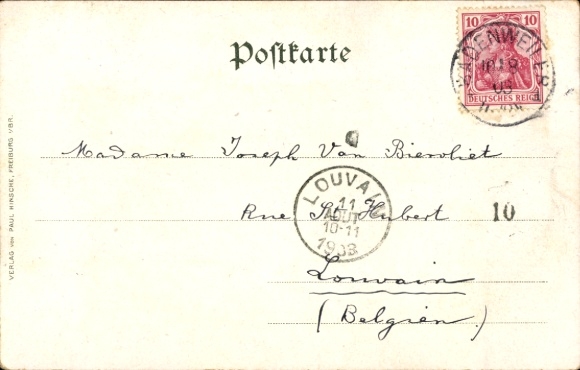 Postkarte
10 10
DEUTSCHES REICH
BADENWEILER
Madame Joseph Van Biervliet
LOUVAIN
11
AOUT
10-11
Rue St Hubert 10
Louvain
(Belgien)
VERLAG von PAUL HINSCHE, FREIBURG i/BR.